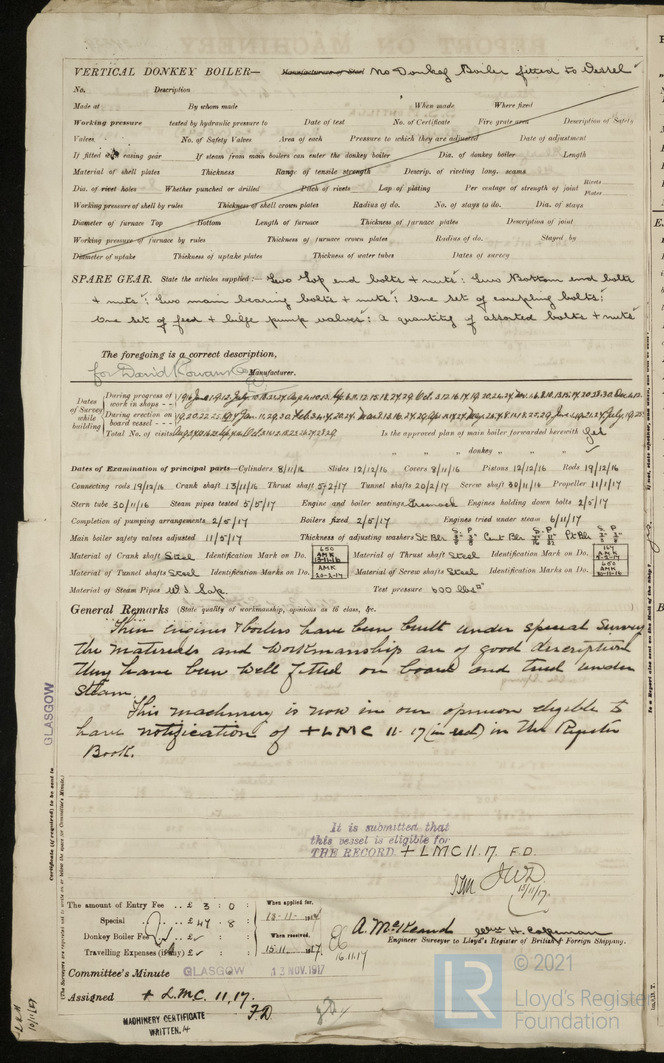 VERTICAL DONKEY BOILER— Manufacturer of Steel No Donkey Boiler fitted to Vessel
No. Description
Made at By whom made When made Where fixed
Working pressure tested by hydraulic pressure to Date of test No. of Certificate Fire grate area Description of Safety
Valves No. of Safety Valves Area of each Pressure to which they are adjusted Date of adjustment
If fitted with easing gear If steam from main boilers can enter the donkey boiler Dia. of donkey boiler Length
Material of shell plates Thickness Range of tensile strength Descrip. of riveting long. seams
Dia. of rivet holes Whether punched or drilled Pitch of rivets Lap of plating Per centage of strength of joint Rivets Plates
Working pressure of shell by rules Thickness of shell crown plates Radius of do. No. of stays to do. Dia. of stays
Diameter of furnace Top Bottom Length of furnace Thickness of furnace plates Description of joint
Working pressure of furnace by rules Thickness of furnace crown plates Radius of do. Stayed by
Diameter of uptake Thickness of uptake plates Thickness of water tubes Dates of survey
SPARE GEAR. State the articles supplied:— Two Top end bolts & nuts: Two Bottom end bolts
& nuts: Two main bearing bolts & nuts: One set of coupling bolts:
One set of feed & bilge pump valves: a quantity of assorted bolts & nuts
The foregoing is a correct description,
for David Rowan & Co Manufacturer.
Dates of Survey while building
During progress of work in shops - -
During erection on board vessel - - -
Total No. of visits
Is the approved plan of main boiler forwarded herewith Yes
" " " donkey " " "
Dates of Examination of principal parts—Cylinders 8/11/16 Slides 12/12/16 Covers 8/11/16 Pistons 12/12/16 Rods 19/12/16
Connecting rods 19/12/16 Crank shaft 13/11/16 Thrust shaft 5/2/17 Tunnel shafts 20/2/17 Screw shaft 30/11/16 Propeller 11/1/17
Stern tube 30/11/16 Steam pipes tested 5/5/17 Engine and boiler seatings Greenock Engines holding down bolts 2/5/17
Completion of pumping arrangements 2/5/17 Boilers fixed 2/5/17 Engines tried under steam 6/11/17
Main boiler safety valves adjusted 11/5/17 Thickness of adjusting washers
Material of Crank shaft Steel Identification Mark on Do. 650 AMK 13-11-16 Material of Thrust shaft Steel Identification Mark on Do.
Material of Tunnel shafts Steel Identification Marks on Do. AMK 20-2-17 Material of Screw shafts Steel Identification Marks on Do. 650 AMK 30-11-16
Material of Steam Pipes W.I. Lap. Test pressure 600 lbs
General Remarks (State quality of workmanship, opinions as to class, &c.
These engines & boilers have been built under special survey
the materials and workmanship are of good description
they have been well fitted on board and tried under
steam.
This machinery is now in our opinion eligible to
have notification of + LMC 11-17 (in red) in the Register
Book.
GLASGOW
Certificate (if required) to be sent to
(The Surveyors are requested not to write on or below the space for Committee's Minute.)
It is submitted that
this vessel is eligible for
THE RECORD. + LMC 11.17. F.D.
JWD
15/11/17.
The amount of Entry Fee .. £ 3 : 0 :
Special .. £ 47 : 8 :
Donkey Boiler Fee .. £
Travelling Expenses (if any) £
When applied for,
13-11-1917
When received,
15.11.1917
16.11.17
A. McKeand Wm H. Copeman
Engineer Surveyor to Lloyd's Register of British & Foreign Shipping.
Committee's Minute GLASGOW 13 NOV. 1917
Assigned + L.M.C. 11.17.
F.D.
MACHINERY CERTIFICATE
WRITTEN.
© 2021
LR
Lloyd's Register
Foundation